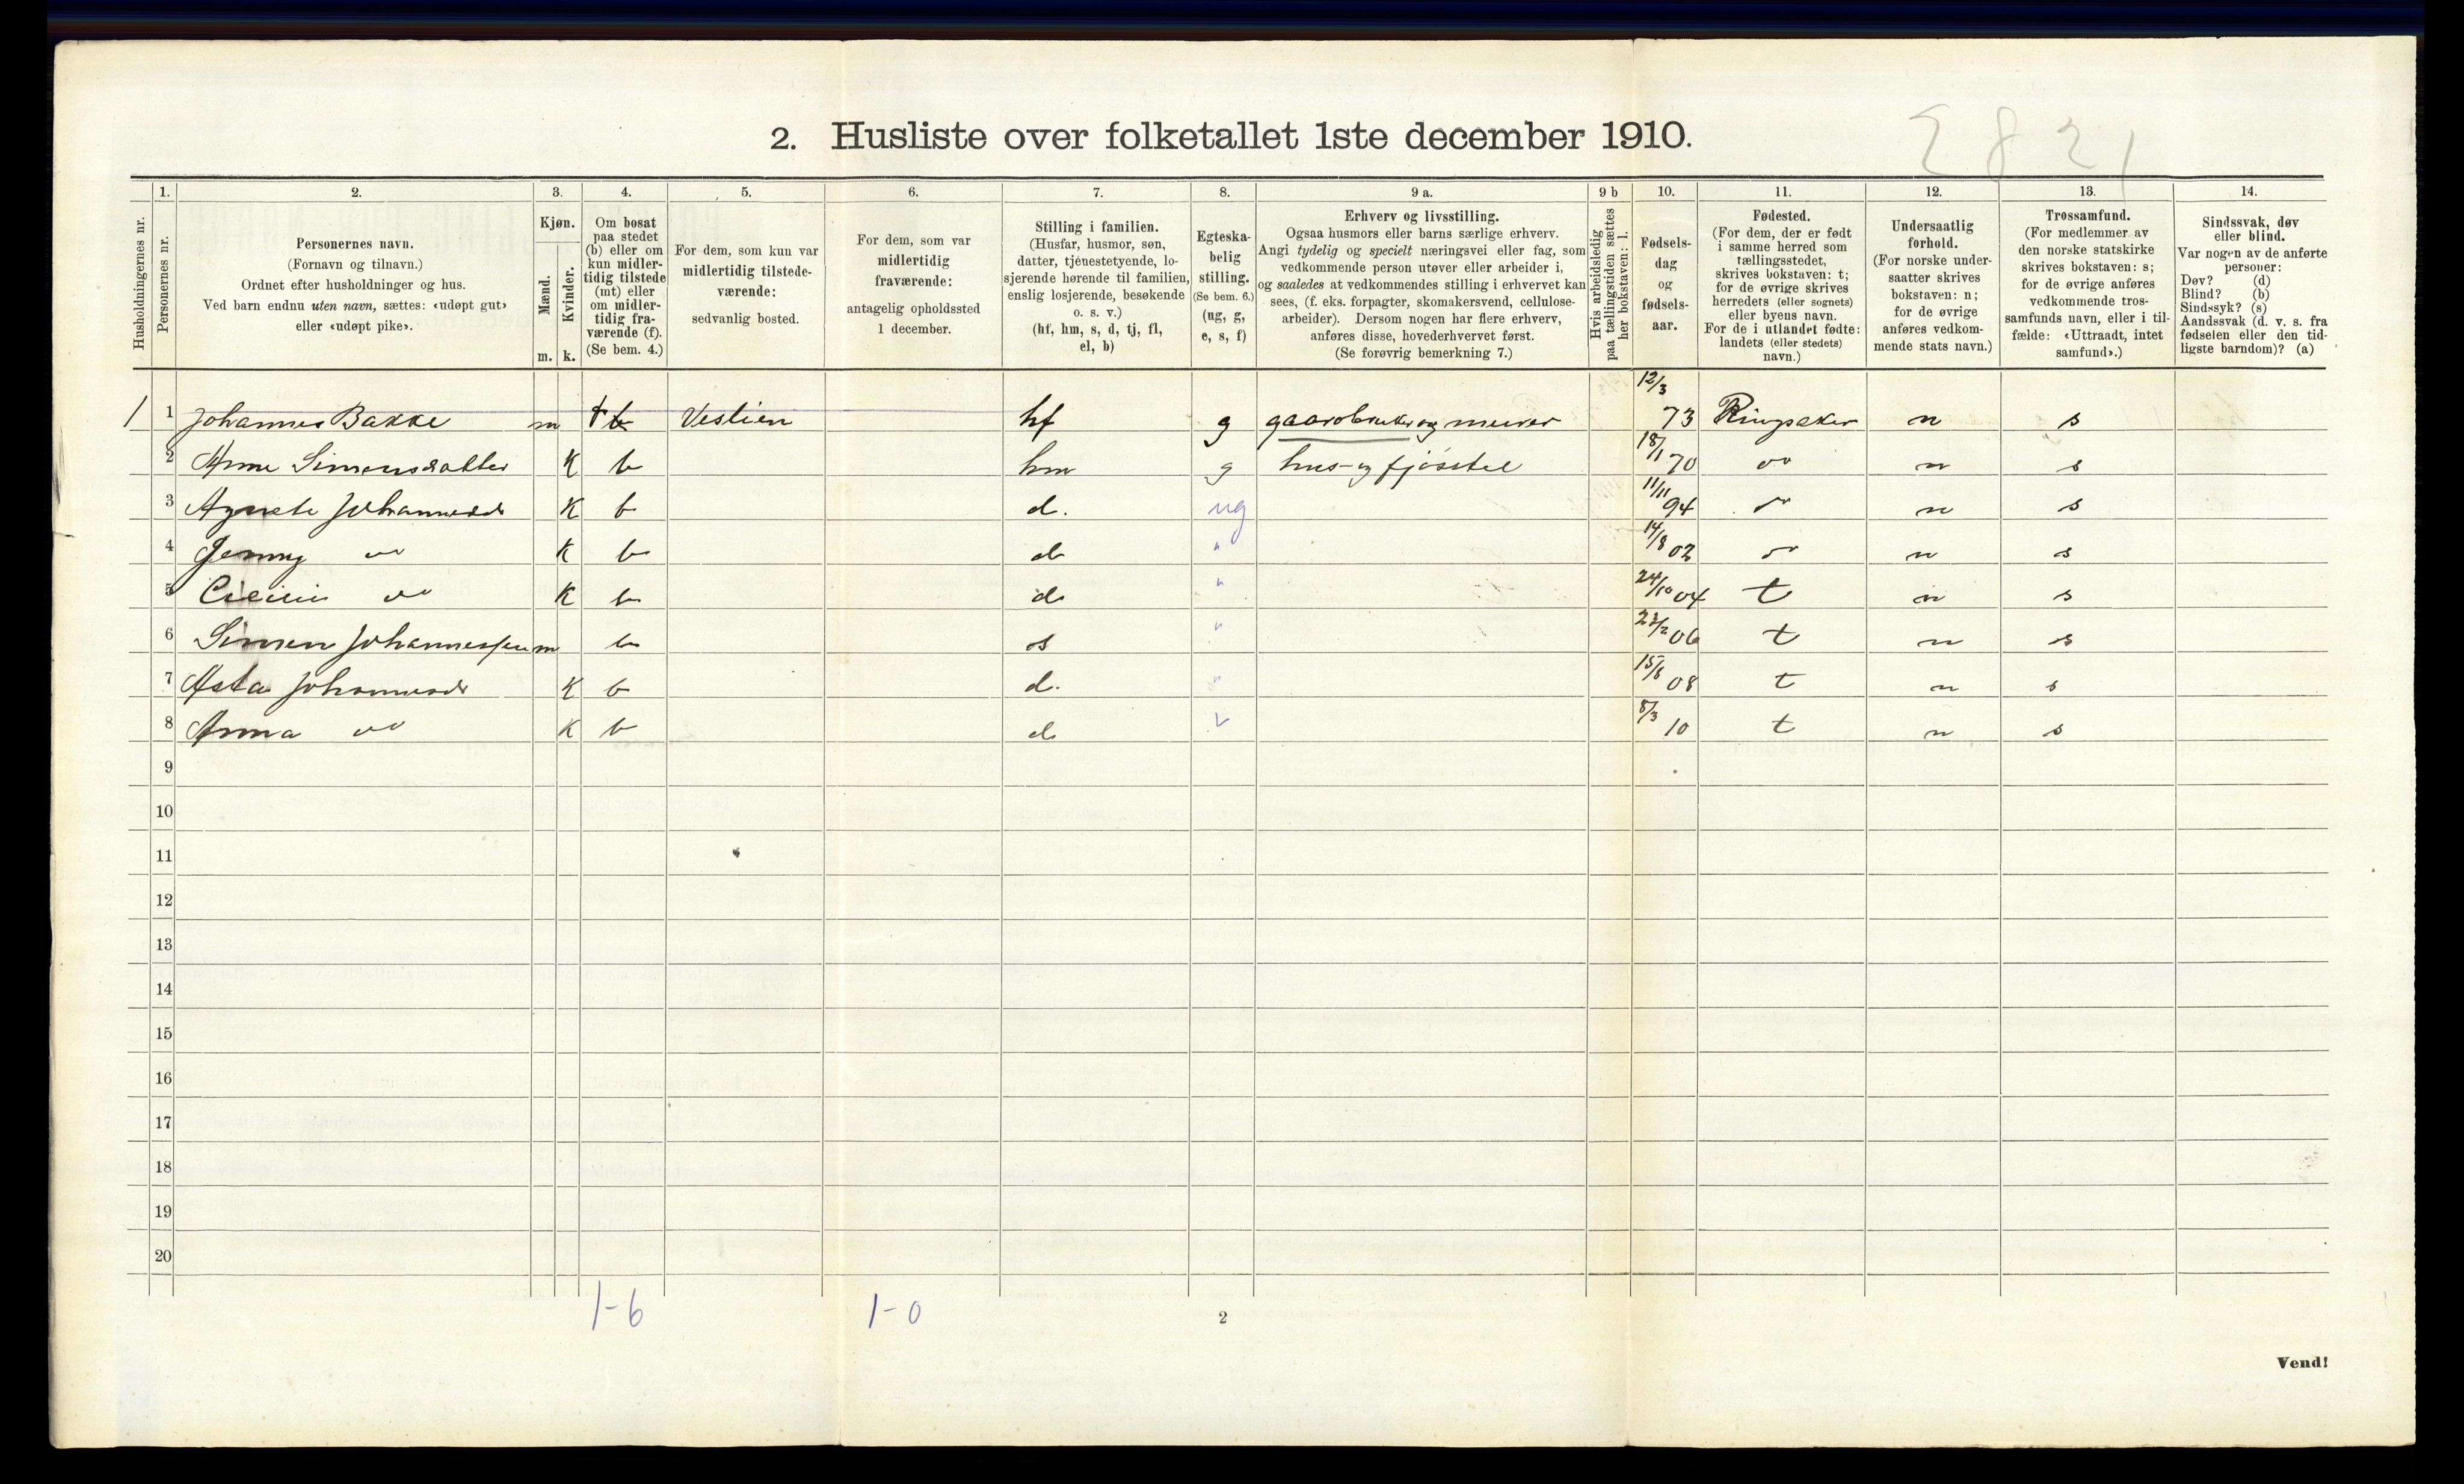 2. Husliste over folketallet 1ste december 1910.
2821
Husholdningernes nr.
1. Personernes nr.
2. Personernes navn. (Fornavn og tilnavn.) Ordnet efter husholdninger og hus. Ved barn endnu uten navn, sættes: «udøpt gut» eller «udøpt pike».
3. Kjøn. Mænd. m. Kvinder. k.
4. Om bosat paa stedet (b) eller om kun midlertidig tilstede (mt) eller om midlertidig fraværende (f). (Se bem. 4.)
5. For dem, som kun var midlertidig tilstedeværende: sedvanlig bosted.
6. For dem, som var midlertidig fraværende: antagelig opholdssted 1 december.
7. Stilling i familien. (Husfar, husmor, søn, datter, tjenestetyende, losjerende hørende til familien, enslig losjerende, besøkende o. s. v.) (hf, hm, s, d, tj, fl, el, b)
8. Egteskabelig stilling. (Se bem. 6.) (ug, g, e, s, f)
9 a. Erhverv og livsstilling. Ogsaa husmors eller barns særlige erhverv. Angi tydelig og specielt næringsvei eller fag, som vedkommende person utøver eller arbeider i, og saaledes at vedkommendes stilling i erhvervet kan sees, (f. eks. forpagter, skomakersvend, cellulosearbeider). Dersom nogen har flere erhverv, anføres disse, hovederhvervet først. (Se forøvrig bemerkning 7.)
9 b Hvis arbeidsledig paa tællingstiden sættes her bokstaven: l.
10. Fødselsdag og fødselsaar.
11. Fødested. (For dem, der er født i samme herred som tællingsstedet, skrives bokstaven: t; for de øvrige skrives herredets (eller sognets) eller byens navn. For de i utlandet fødte: landets (eller stedets) navn.)
12. Undersaatlig forhold. (For norske undersaatter skrives bokstaven: n; for de øvrige anføres vedkommende stats navn.)
13. Trossamfund. (For medlemmer av den norske statskirke skrives bokstaven: s; for de øvrige anføres vedkommende trossamfunds navn, eller i tilfælde: «Uttraadt, intet samfund».)
14. Sindssvak, døv eller blind. Var nogen av de anførte personer: Døv? (d) Blind? (b) Sindssyk? (s) Aandssvak (d. v. s. fra fødselen eller den tidligste barndom)? (a)
1 1 Johannes Bakke m b Vestlien hf g gaardbruker og murer 12/3 73 Ringsaker n s
2 Anne Simensdatter K b hm g hus- og fjösstel 18/1 70 do n s
3 Agnete Johannesd K b d. ug 11/11 94 do n s
4 Jenny do K b d " 14/8 02 do n s
5 do K b d " 24/10 04 t n s
6 Simen Johannessen m b s " 06 t n s
7 Asta Johannesd K b d. " 15/8 08 t n s
8 Anna do K b d " 8/3 10 t n s
9
10
11
12
13
14
15
16
17
18
19
20
1-6 1-0
2
Vend!